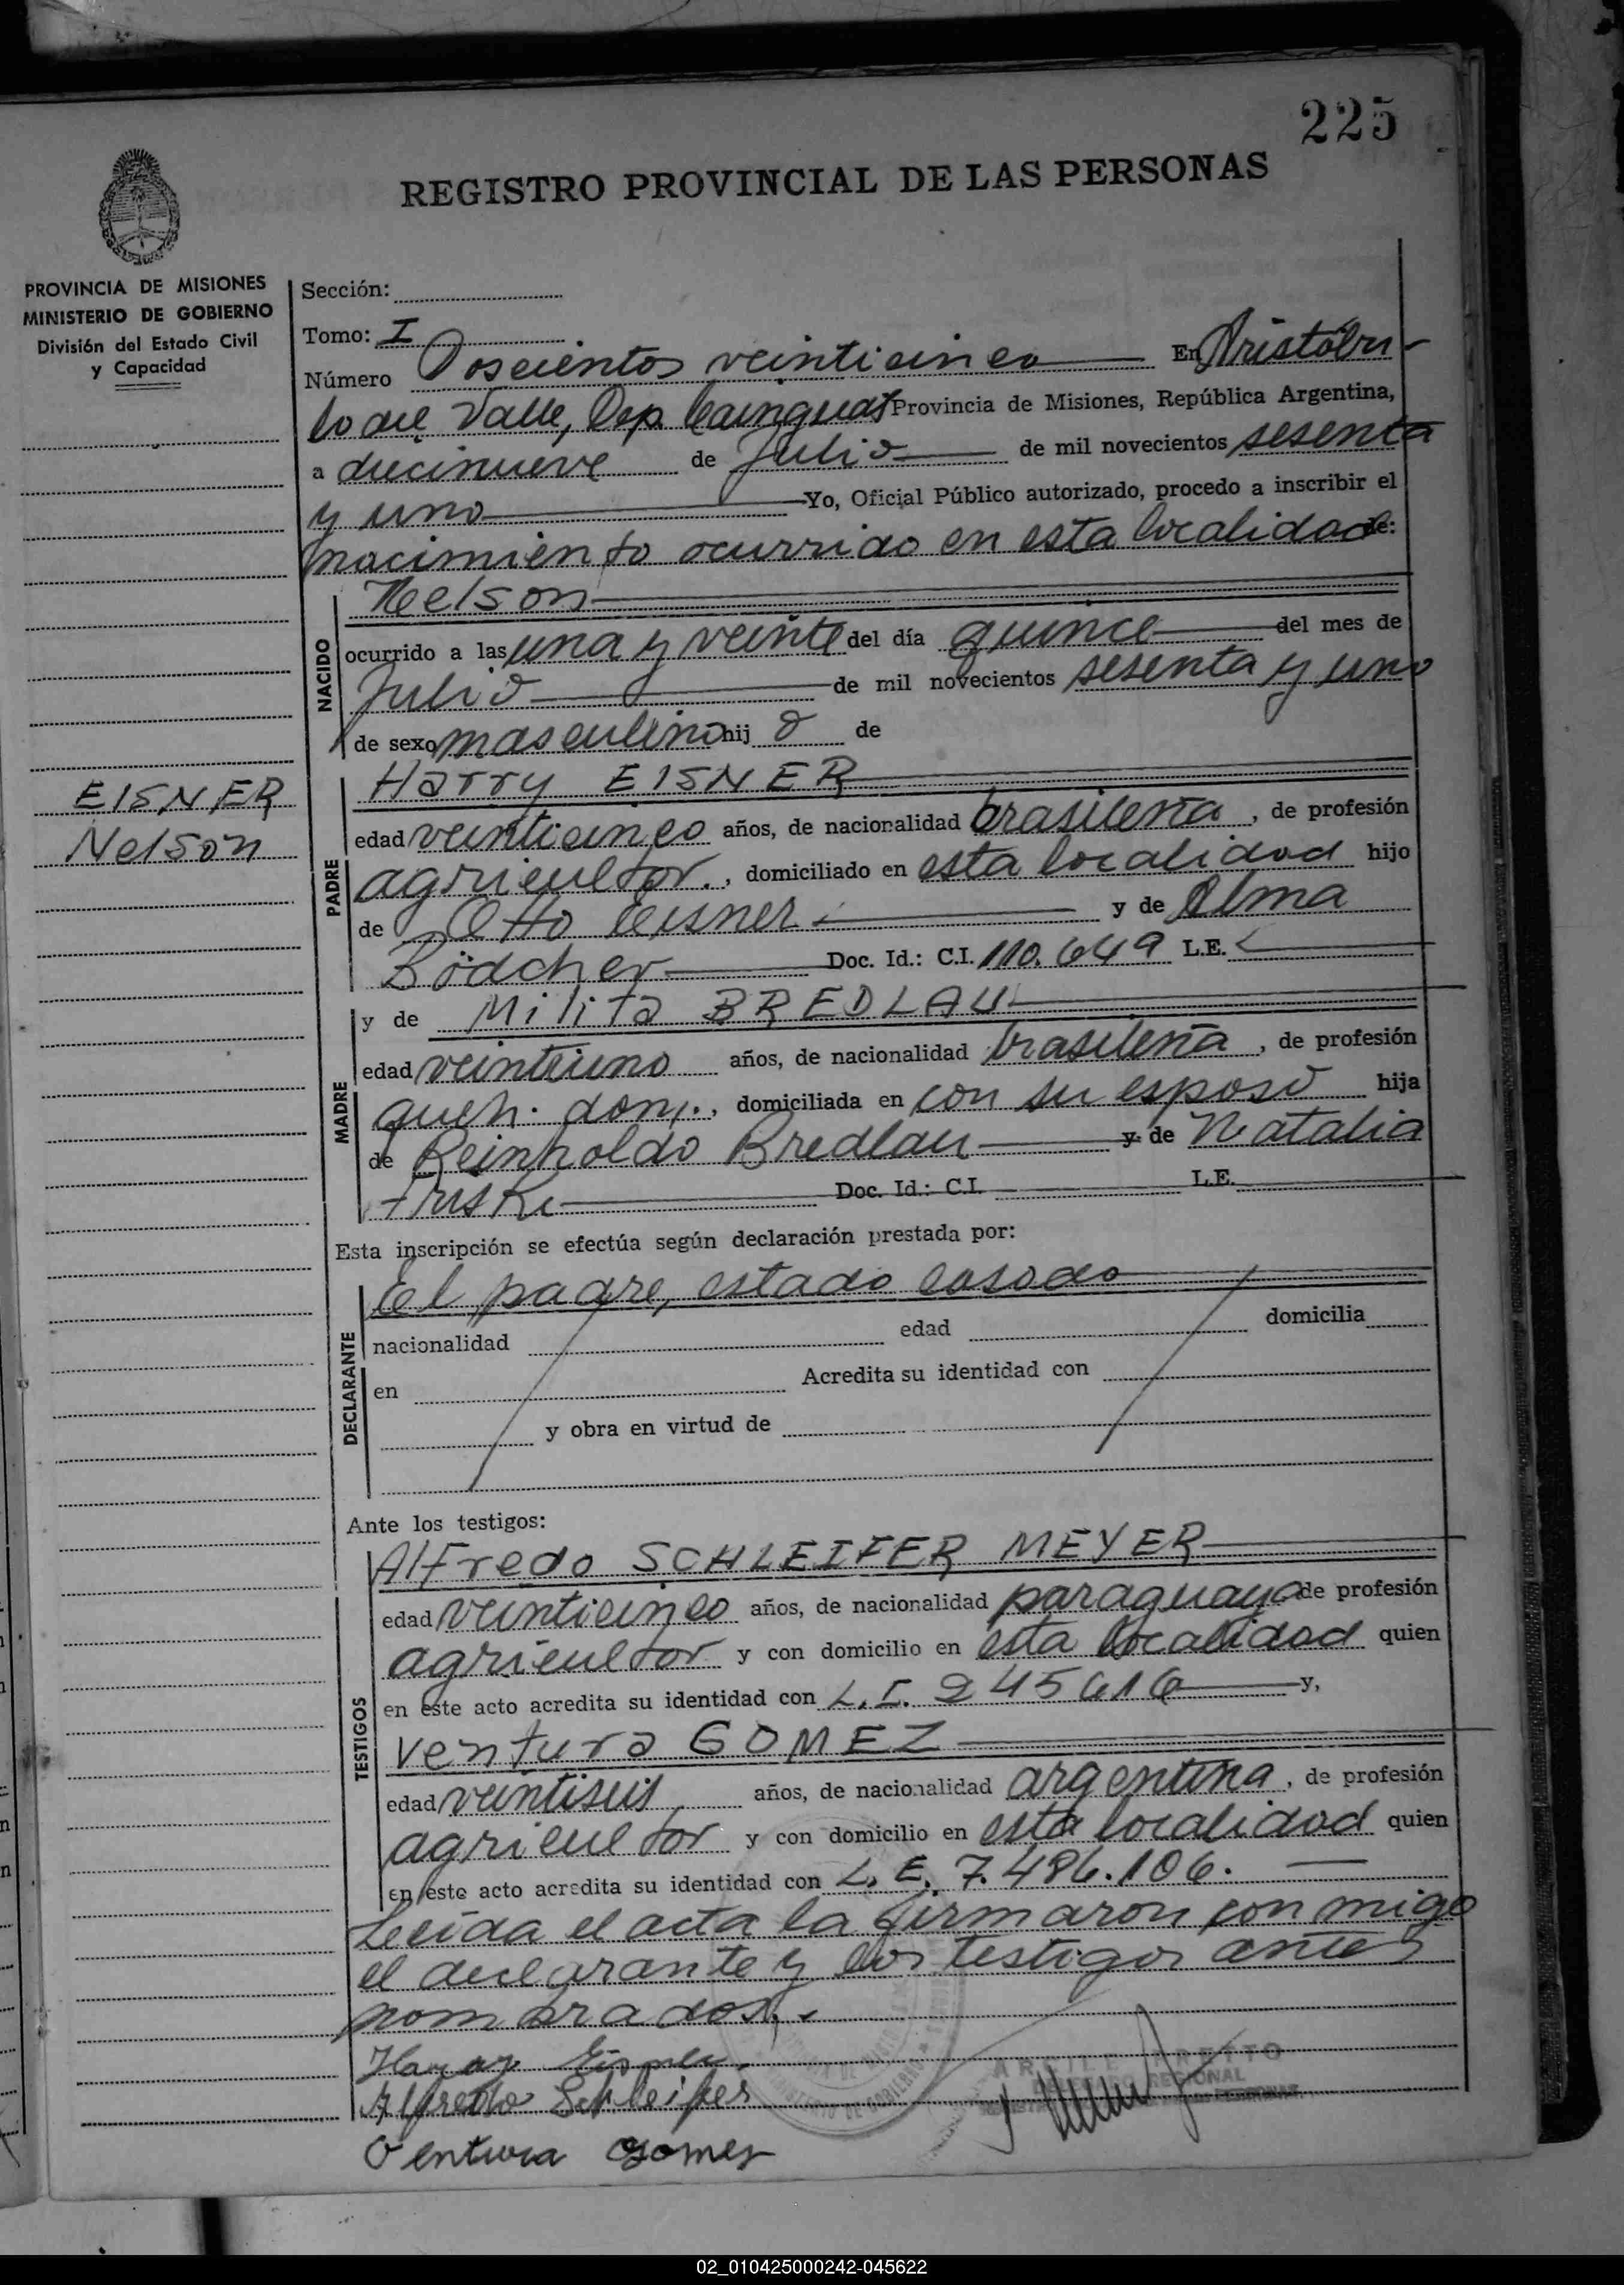 225
REGISTRO PROVINCIAL DE LAS PERSONAS
PROVINCIA DE MISIONES
MINISTERIO DE GOBIERNO
División del Estado Civil
y Capacidad
Sección:
Tomo: I
Número Doscientos veinticinco En Aristóbu-
lo del Valle, Dep. Cainguas Provincia de Misiones, República Argentina,
a diecinueve de Julio de mil novecientos sesenta
y uno Yo, Oficial Público autorizado, procedo a inscribir el
nacimiento ocurrido en esta localidad de:
NACIDO
Nelson
ocurrido a las una y veinte del día quince del mes de
Julio de mil novecientos sesenta y uno
de sexo masculino hij o de
EISNER
Nelson
PADRE
Harry EISNER
edad veinticinco años, de nacionalidad brasileña, de profesión
agricultor., domiciliado en esta localidad hijo
de Otto Eisner y de Alma
Bödcher Doc. Id.: C.I. 110.649 L.E.
MADRE
y de Milita BREDLAU
edad veintiuno años, de nacionalidad brasileña, de profesión
queh. dom., domiciliada en con su esposo hija
de Reinholdo Bredlau y de Natalia
Doc. Id.: C.I. L.E.
Esta inscripción se efectúa según declaración prestada por:
DECLARANTE
El padre, estado casado
nacionalidad edad domicilia
en Acredita su identidad con
y obra en virtud de
Ante los testigos:
TESTIGOS
Alfredo SCHLEIFER MEYER
edad veinticinco años, de nacionalidad paraguaya de profesión
agricultor y con domicilio en esta localidad quien
en este acto acredita su identidad con 245616 y,
Ventura GOMEZ
edad veintiseis años, de nacionalidad argentina, de profesión
agricultor y con domicilio en esta localidad quien
en este acto acredita su identidad con L. E. 7.486.106.
Leída el acta la firmaron conmigo
el declarante y los testigos antes
nombrados.
Harry Eisner.
Alfredo Schleifer
Ventura Gomez
02_010425000242-045622